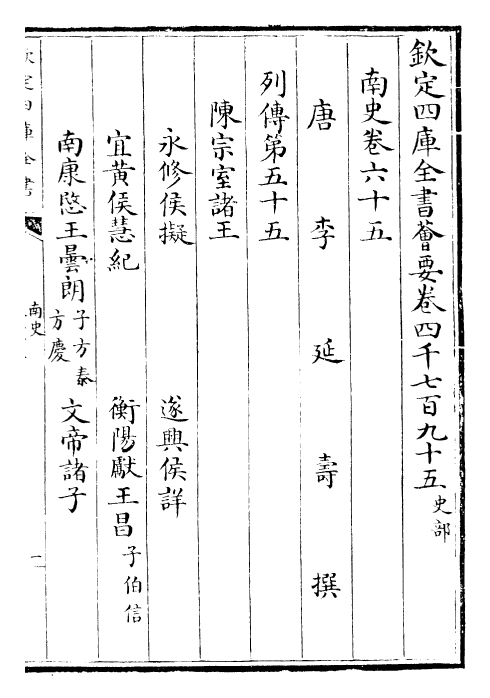 欽定四庫全書薈要卷四千七百九十五 史部
南史卷六十五
唐 李 延 壽 撰
列傳第五十五
陳宗室諸王
永修侯擬 遂興侯詳
宜黃侯慧紀 衡陽獻王昌 子伯信
南康愍王曇朗 子方泰 方慶 文帝諸子
欽定四庫全書
南史
一